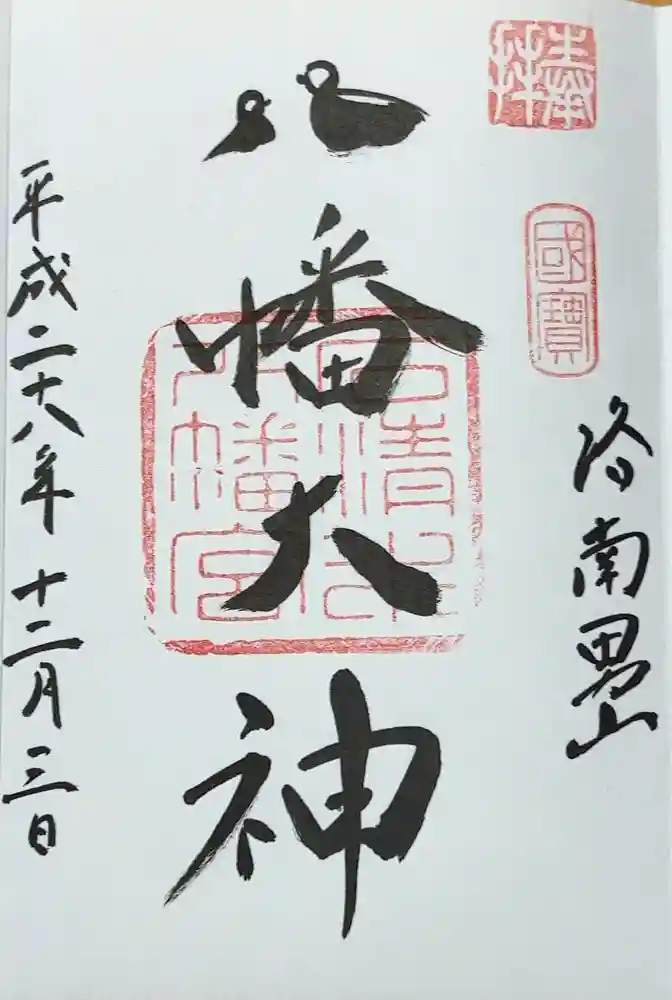 奉拝
國寶
洛南男山
八幡大神
石清水八幡宮
平成二十八年 十二月三日